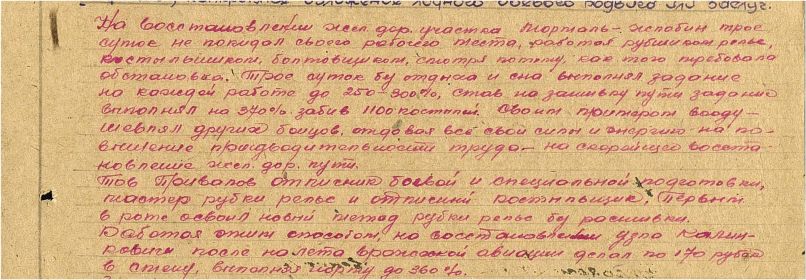 конкретное изложение личного боевого подвига или заслуг.
На восстановлении жел. дор. участка Жлобин трое
суток не покидал своего рабочего места, работая рубщиком рельс,
костыльщиком, болтовщиком, смотря потому, как того требовала
обстановка. Трое суток без отдыха и сна выполнял задание
на каждой работе до 250-300%, став на зашивку пути задание
выполнял на 370% забив 1100 костылей. Своим примером вооду-
шевлял других бойцов, отдовая все свои силы и энергию на по-
вышение производительности труда - на скорейшего восста-
новление жел. дор. пути.
Тов Привалов отличник боевой и специальной подготовки,
мастер рубки рельс и отличный костыльщик. Первый
в роте освоил новый метод рубки рельс без расшивки.
Работая этим способом, на восстановлении узла Калин-
ковичи после налета вражеской авиации делал по 170 рубок
в смену, выполняя норму до 360%.